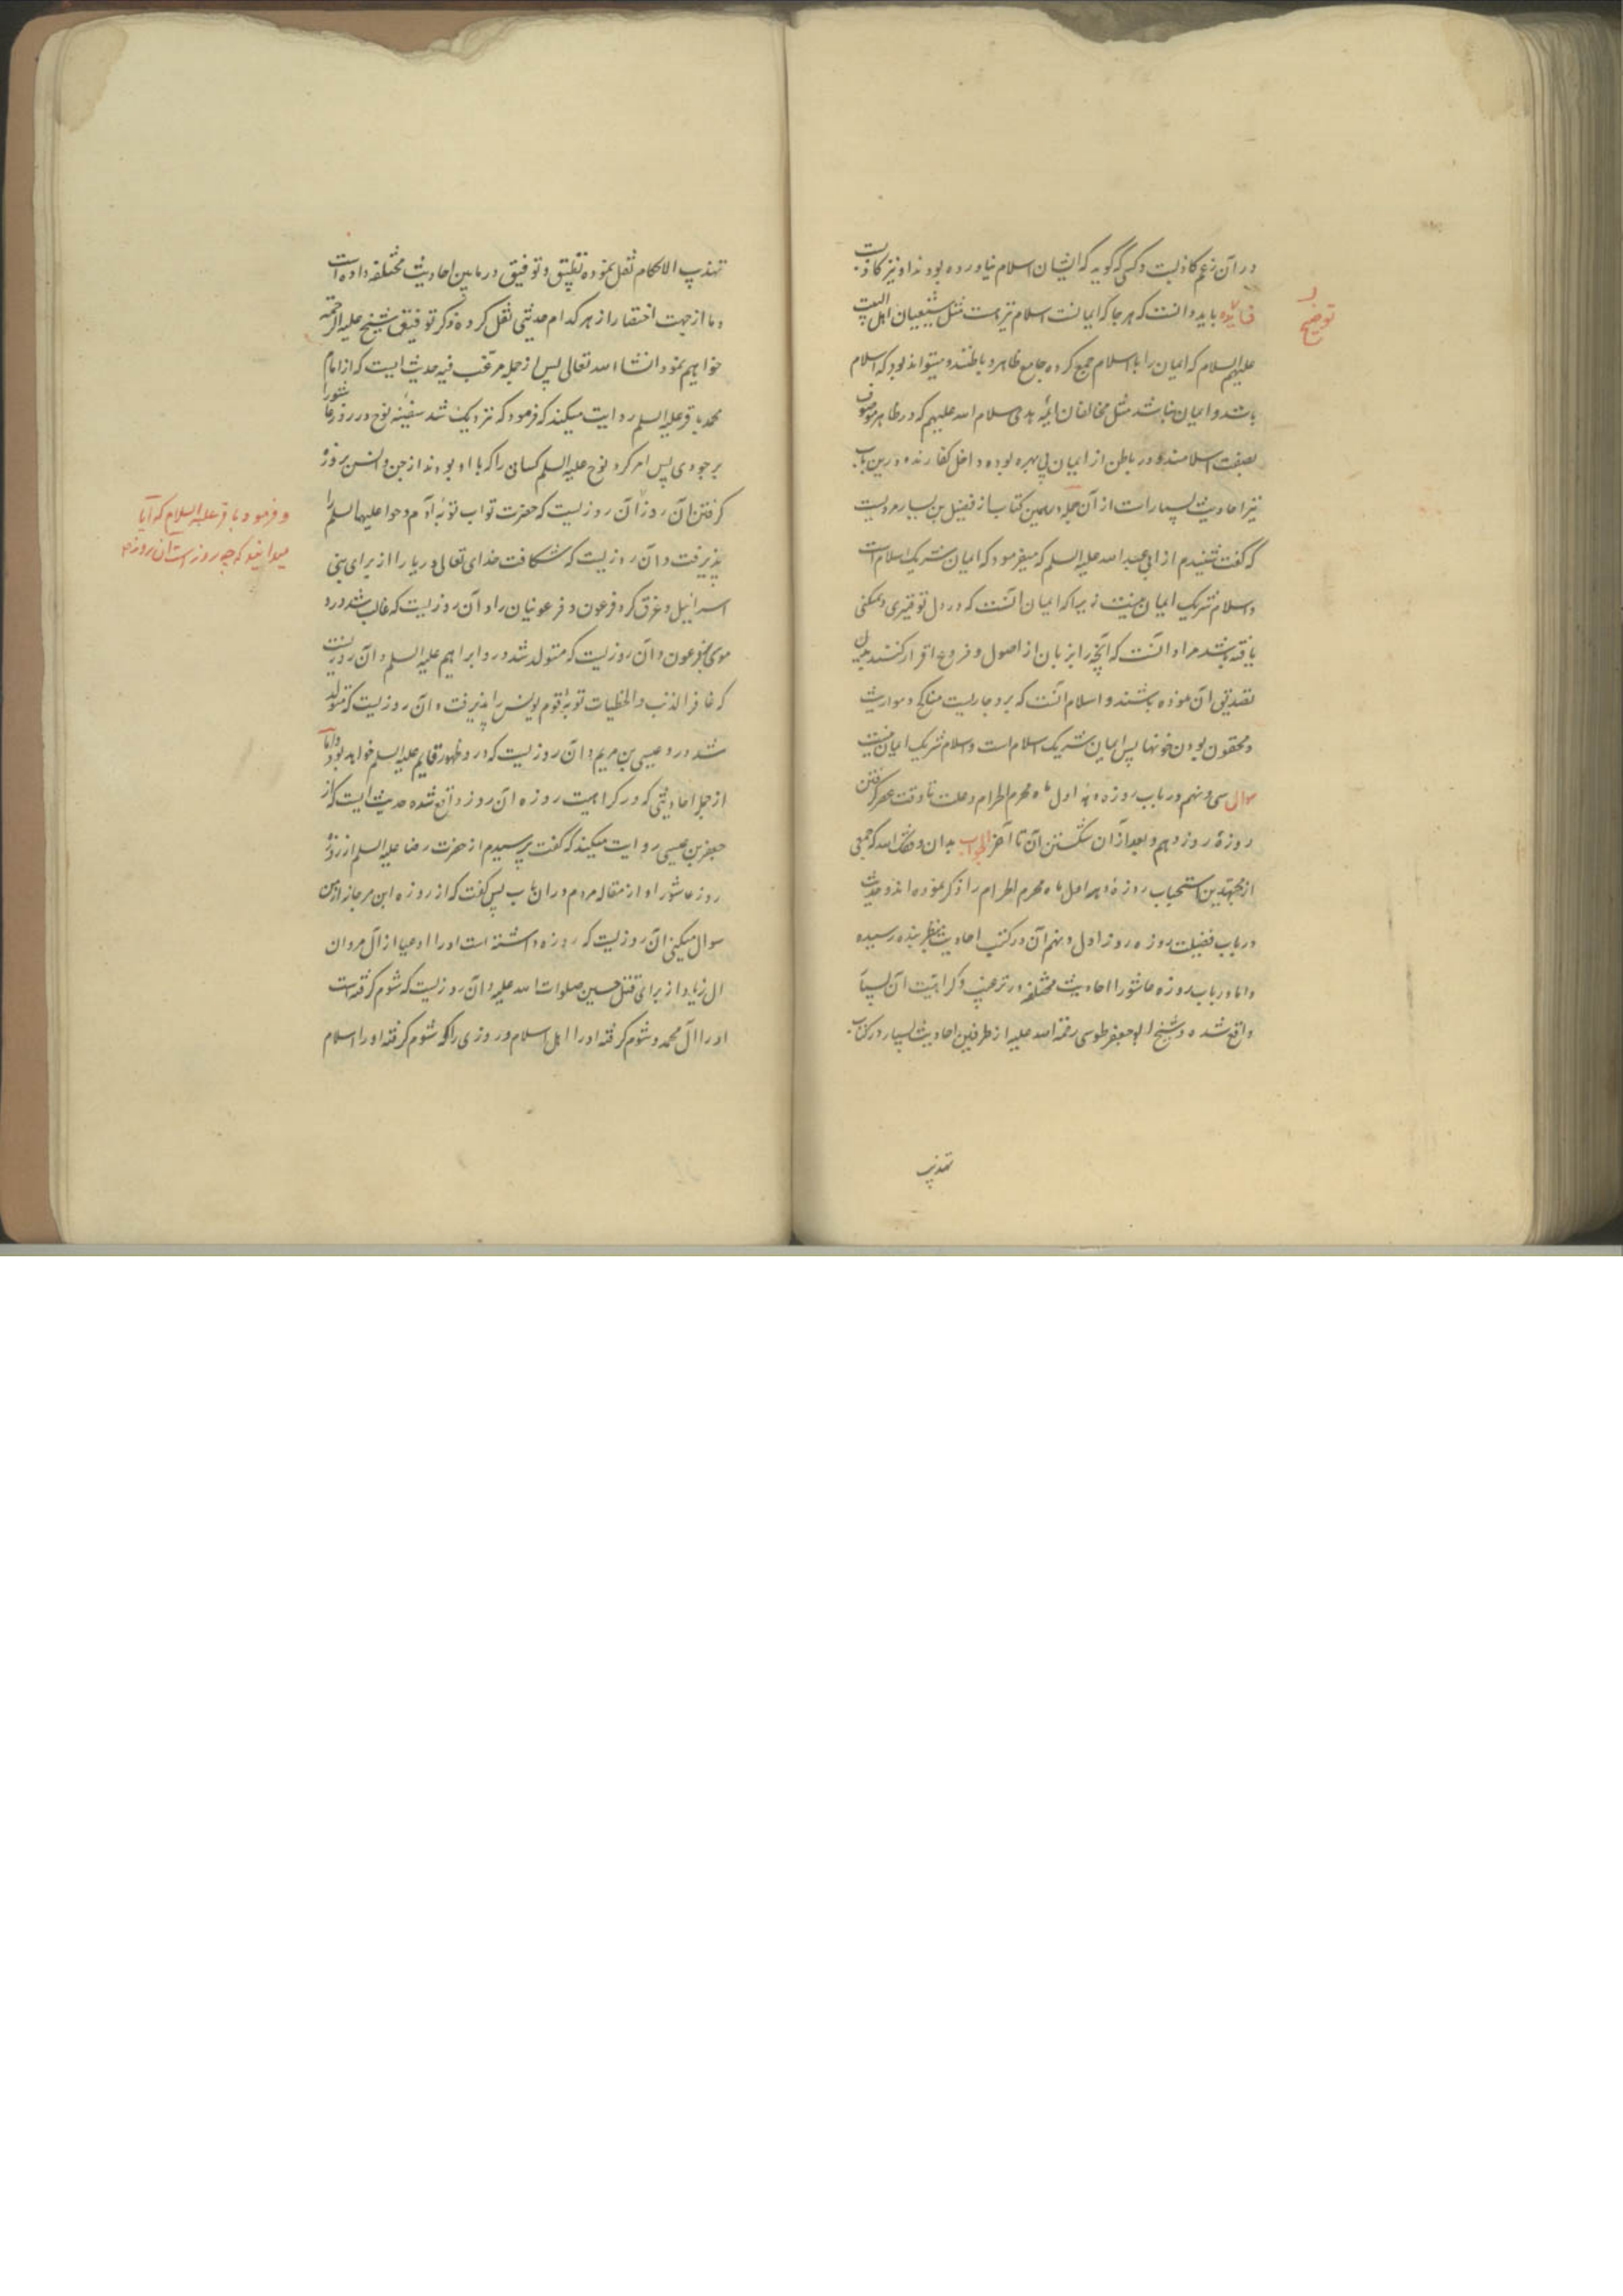 در آن زعم کاذبست و کسی که گوید که ایشان اسلام نیاورده بودند او نیز کاذبست
فایده باید دانست که هر جا که ایمانست اسلام نیز هست مثل شیعیان اهل البیت
توضیح
علیهم السلام که ایمان را با اسلام جمع کرده جامع ظاهر و باطنند و میتواند بود که اسلام
باشد و ایمان نباشد مثل مخالفان ائمه هدی سلام الله علیهم که در ظاهر موصوف
بصفت اسلامند و در باطن از ایمان بی بهره بوده داخل کفارند و درین باب
نیز احادیث بسیار است از آن جمله در همین کتاب از فضیل بن یسار مرویست
که گفت شنیدم از ابی عبد الله علیه السلم که میفرمود که ایمان شریک اسلام است
و اسلام شریک ایمان نیست زیرا که ایمان آنست که در دل توقیری و تمکنی
یافته باشد مراد آنست که آنچه را بزبان از اصول و فروع اقرار کنند بدل
تصدیق آن نموده باشند و اسلام آنست که برو جاریست مناکح و مواریث
و محقون بودن خونها پس ایمان شریک اسلام است و اسلام شریک ایمان نیست
سوال سی و نهم در باب روزه دهه اول ماه محرم الحرام و علت تا وقت عصر گرفتن
روزهٔ روز دهم و بعد از آن شکستن آن تا آخر الجواب بدان وفقک الله که جمعی
از مجتهدین استحباب روزهٔ دهه اول ماه محرم الحرام را ذکر نموده اند و حدیث
در باب فضیلت روزه روز اول و نهم آن در کتب احادیث بنظر بنده رسیده
و اما در باب روزه عاشورا احادیث مختلفه در ترغیب و کراهیت آن بسیار
واقع شده و شیخ ابو جعفر طوسی رحمة الله علیه از طرفین احادیث بسیار در کتاب
تهذیب
تهذیب الاحکام نقل نموده تطبیق و توفیق در ما بین احادیث مختلفه داده است
و ما از جهت اختصار از هر کدام حدیثی نقل کرده ذکر توفیق شیخ علیه الرحمه
خواهیم نمود انشاالله تعالی پس از جمله مرغب فیه حدیث ایست که از امام
محمد باقر علیه السلم روایت میکند که فرمود که نزدیک شد سفینه نوح در روز عاشورا
بر جودی پس امر کرد نوح علیه السلم کسانی را که با او بودند از جن و انس بروزه
گرفتن آن روز آن روزیست که حضرت تواب توبهٔ آدم و حوا علیهما السلم را
و فرمود باقر علیه السلام که آیا
میدانید که چه روز است آن روز
پذیرفت و آن روزیست که شکافت خدای تعالی دریا را از برای بنی
اسرائیل و غرق کرد فرعون و فرعونیان را و آن روزیست که غالب شد درو
موسی بفرعون و آن روزیست که متولد شد درو ابراهیم علیه السلم و آن روزیست
که غافر الذنب و الخطیات توبهٔ قوم یونس را پذیرفت و آن روزیست که متولد
شد درو عیسی بن مریم و آن روزیست که درو ظهور قایم علیه السلم خواهد بود و اما
از جمله احادیثی که در کراهیت روزه آن روز واقع شده حدیث ایست که از
جعفر بن عیسی روایت میکند که گفت پرسیدم از حضرت رضا علیه السلم از روزهٔ
روز عاشورا و از مقاله مردم در ان باب پس گفت که از روزه ابن مرجانه از من
سوال میکنی آن روزیست که روزه داشته است او را ادعیا از آل مروان
ال زیاد از برای قتل حسین صلوات الله علیه و آن روزیست که شوم گرفته است
او را آل محمد و شوم گرفته او را اهل اسلام و روزی را که شوم گرفته او را اسلام